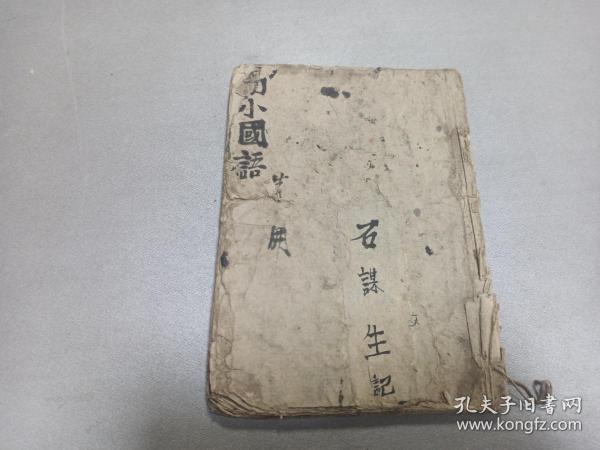 小國語
用
石謀生記
孔夫子旧书网
www.kongfz.com